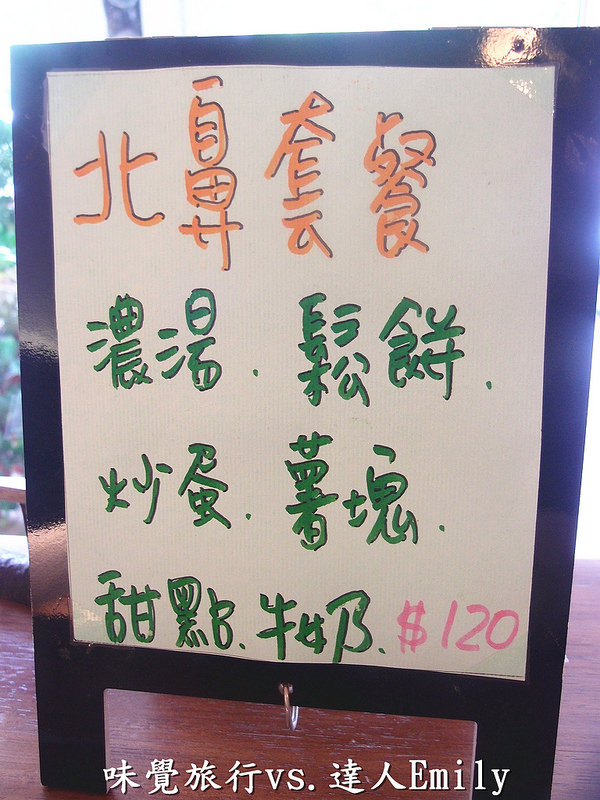 北鼻套餐
濃湯.鬆餅.
炒蛋.薯塊.
甜點.牛奶.$120
味覺旅行vs.達人Emily